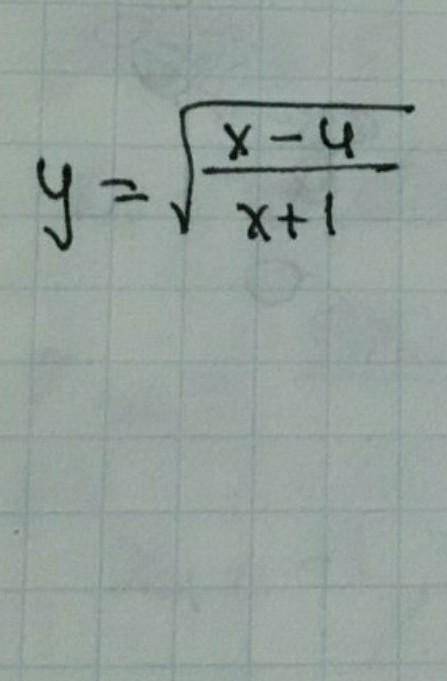 y = √((x-4)/(x+1))